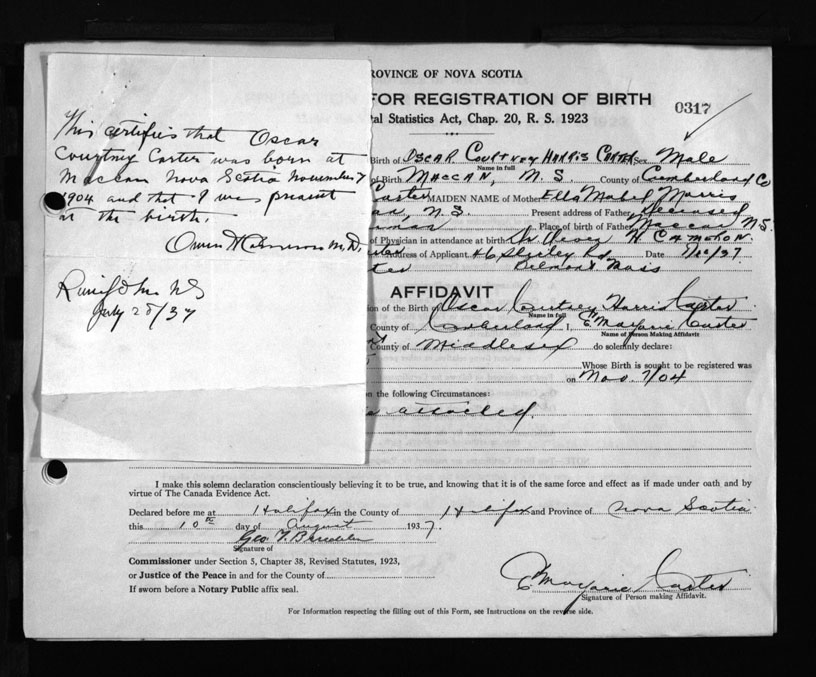 This certifies that Oscar
Courtney Carter was born at
Maccan Nova Scotia November 7
1904 and that I was present
at the birth.
Cameron M.D.
July 28/37
ROVINCE OF NOVA SCOTIA
FOR REGISTRATION OF BIRTH
0317
tal Statistics Act, Chap. 20, R. S. 1923
Birth of OSCAR COURTNEY HARRIS CARTER Sex Male
Name in full
of Birth MACCAN, N.S. County of Cumberland Co
Carter MAIDEN NAME of Mother Ella Mabel Morris
an, N.S. Present address of Father Deceased
man Place of birth of Father Maccan N.S.
of Physician in attendance at birth H CAMERON.
Address of Applicant 46 Shirley Rd Date
ter Belmont Mass
AFFIDAVIT
tion of the Birth of Oscar Courtney Harris Carter
Name in full
County of Cumberland I, E Marjorie Carter
Name of Person Making Affidavit
County of Middlesex do solemnly declare:
Whose Birth is sought to be registered was
on Nov. 7/04
n the following Circumstances:
attached.
I make this solemn declaration conscientiously believing it to be true, and knowing that it is of the same force and effect as if made under oath and by
virtue of The Canada Evidence Act.
Declared before me at Halifax in the County of Halifax and Province of Nova Scotia
this 10th day of August 1937.
Geo
Signature of
Commissioner under Section 5, Chapter 38, Revised Statutes, 1923,
or Justice of the Peace in and for the County of
If sworn before a Notary Public affix seal.
E Marjorie Carter
Signature of Person making Affidavit.
For Information respecting the filling out of this Form, see Instructions on the reverse side.